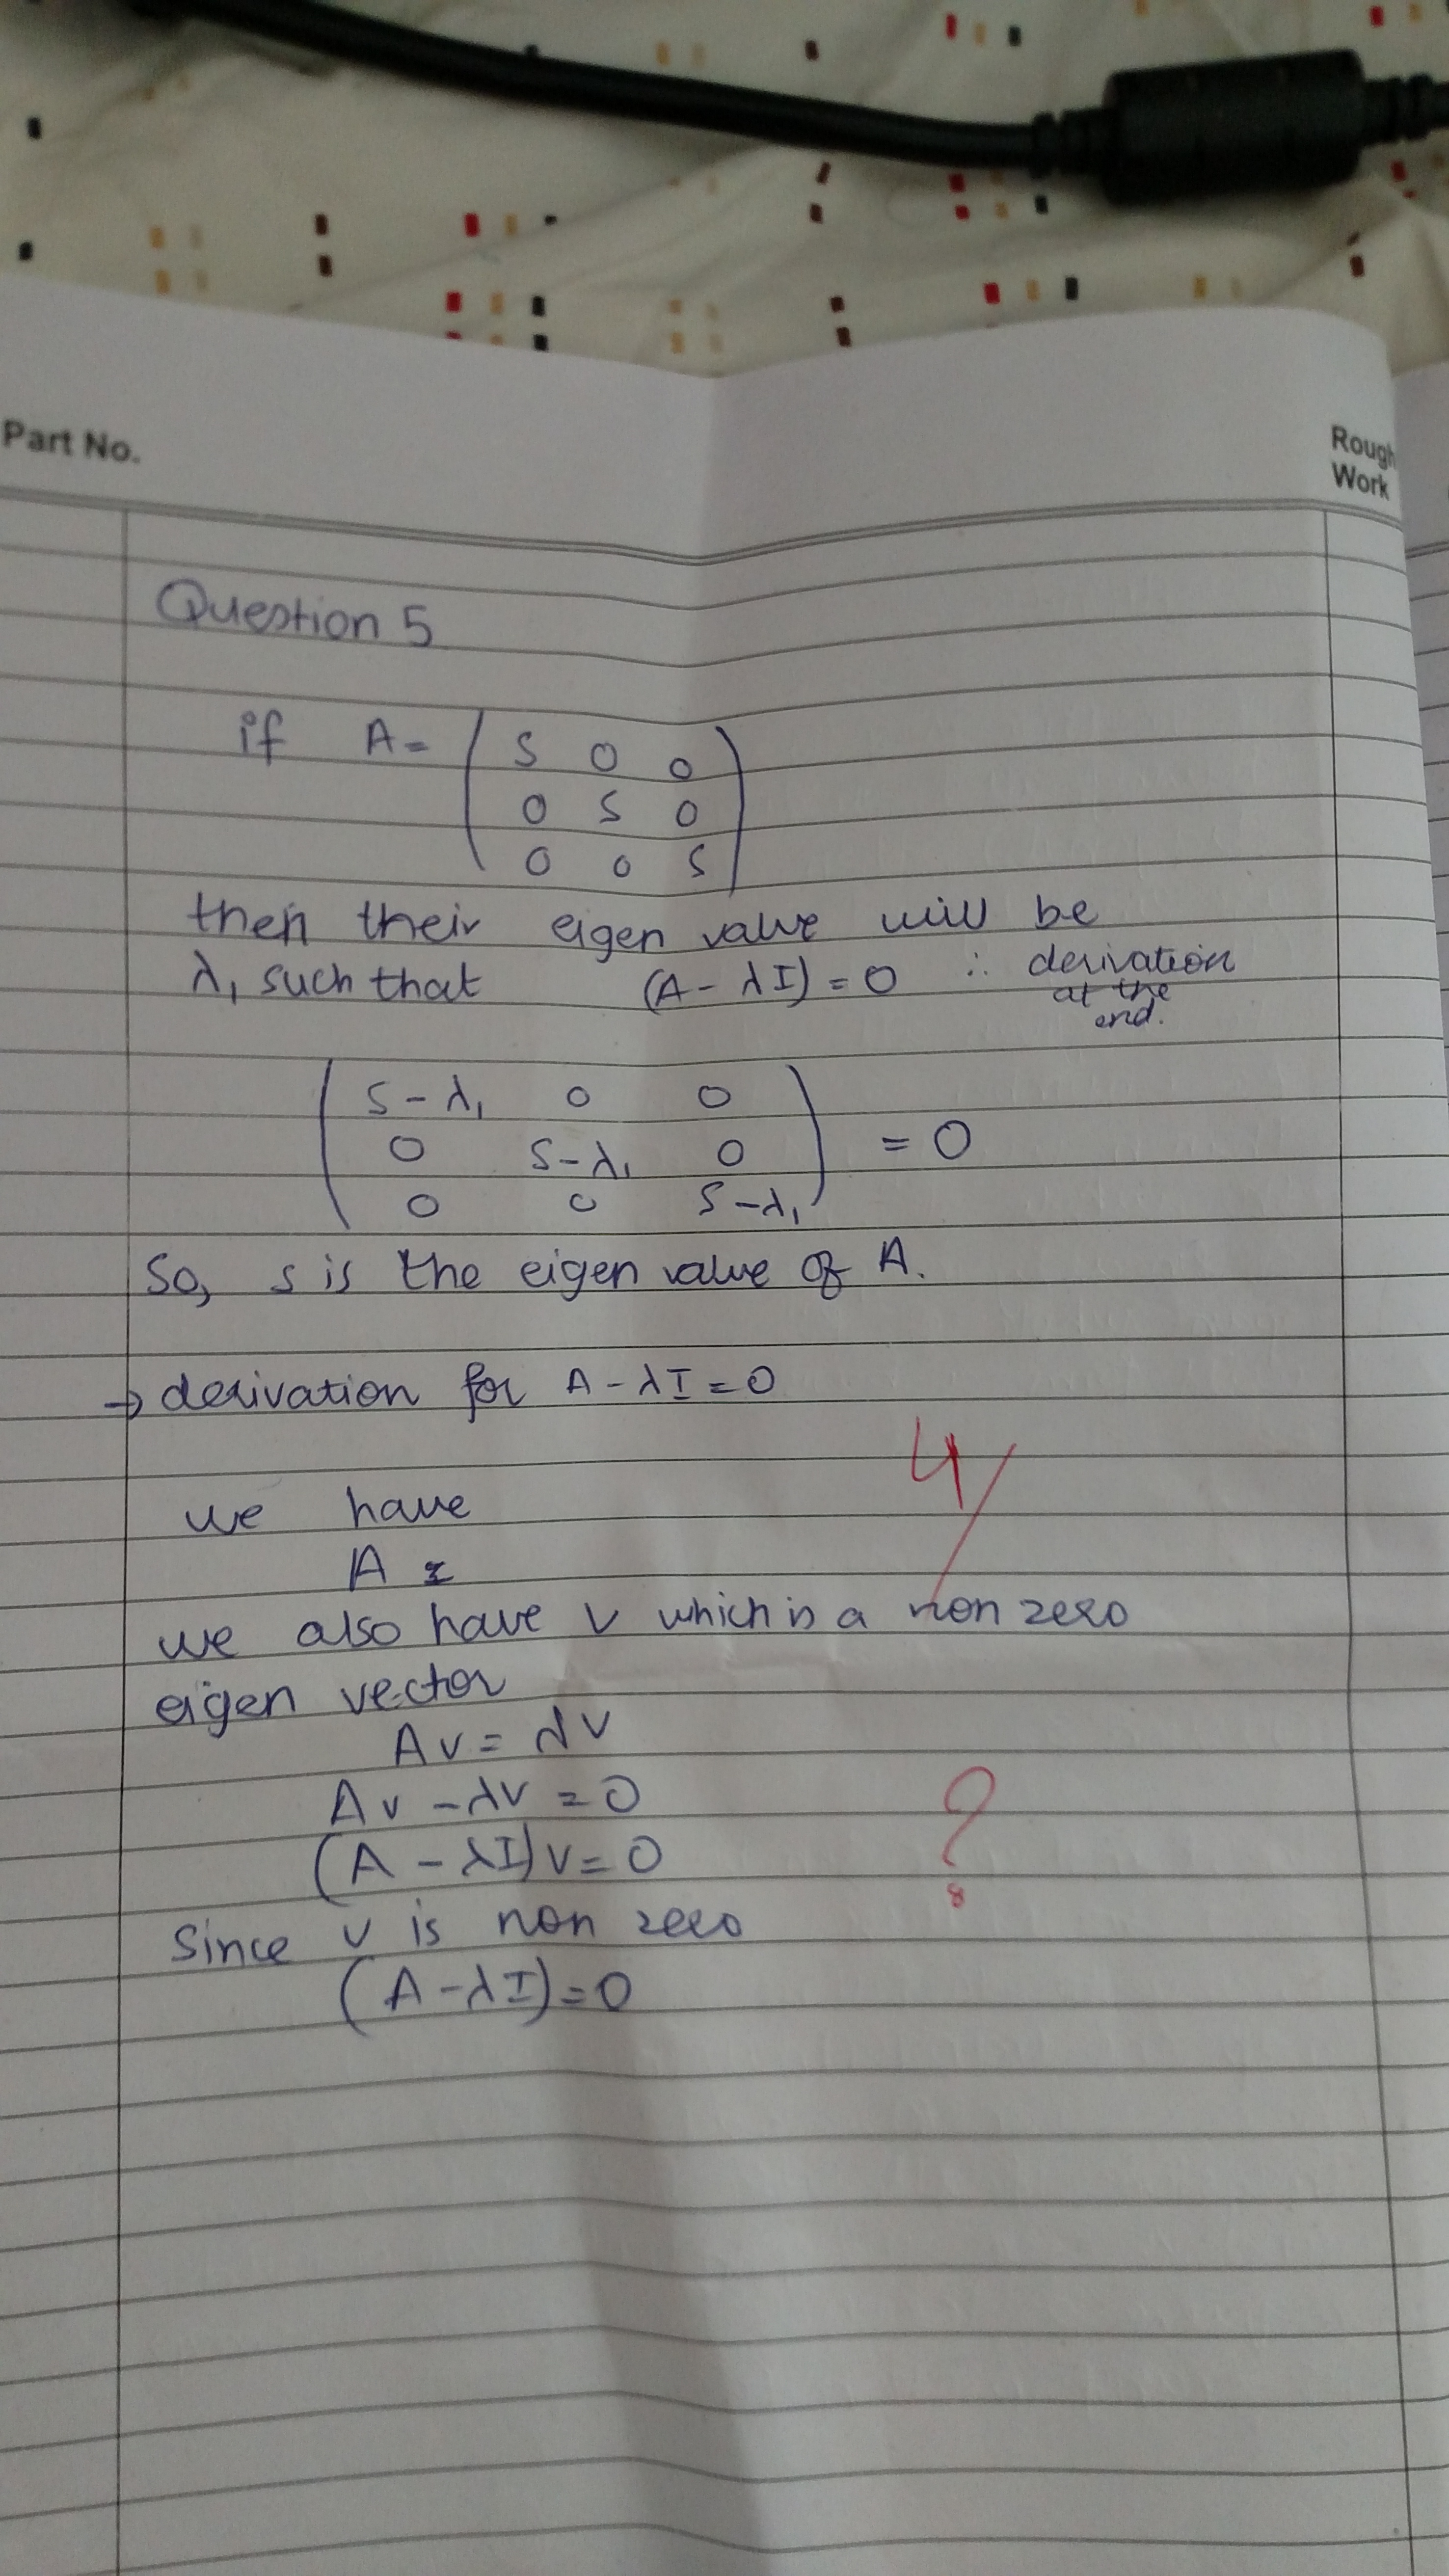 Part No.
Rough
Work
Question 5
if A = ( S 0 0
0 S 0
0 0 S )
then their eigen value will be
λ₁ such that (A - λI) = 0 ∴ derivation
at the
end.
( S - λ₁ 0 0
0 S - λ₁ 0
0 0 S - λ₁ ) = 0
So, s is the eigen value of A.
→ derivation for A - λI = 0
4/
we have
A
we also have v which is a non zero
eigen vector
Av = λv
Av - λv = 0
(A - λI)v = 0
?
Since v is non zero
(A - λI) = 0